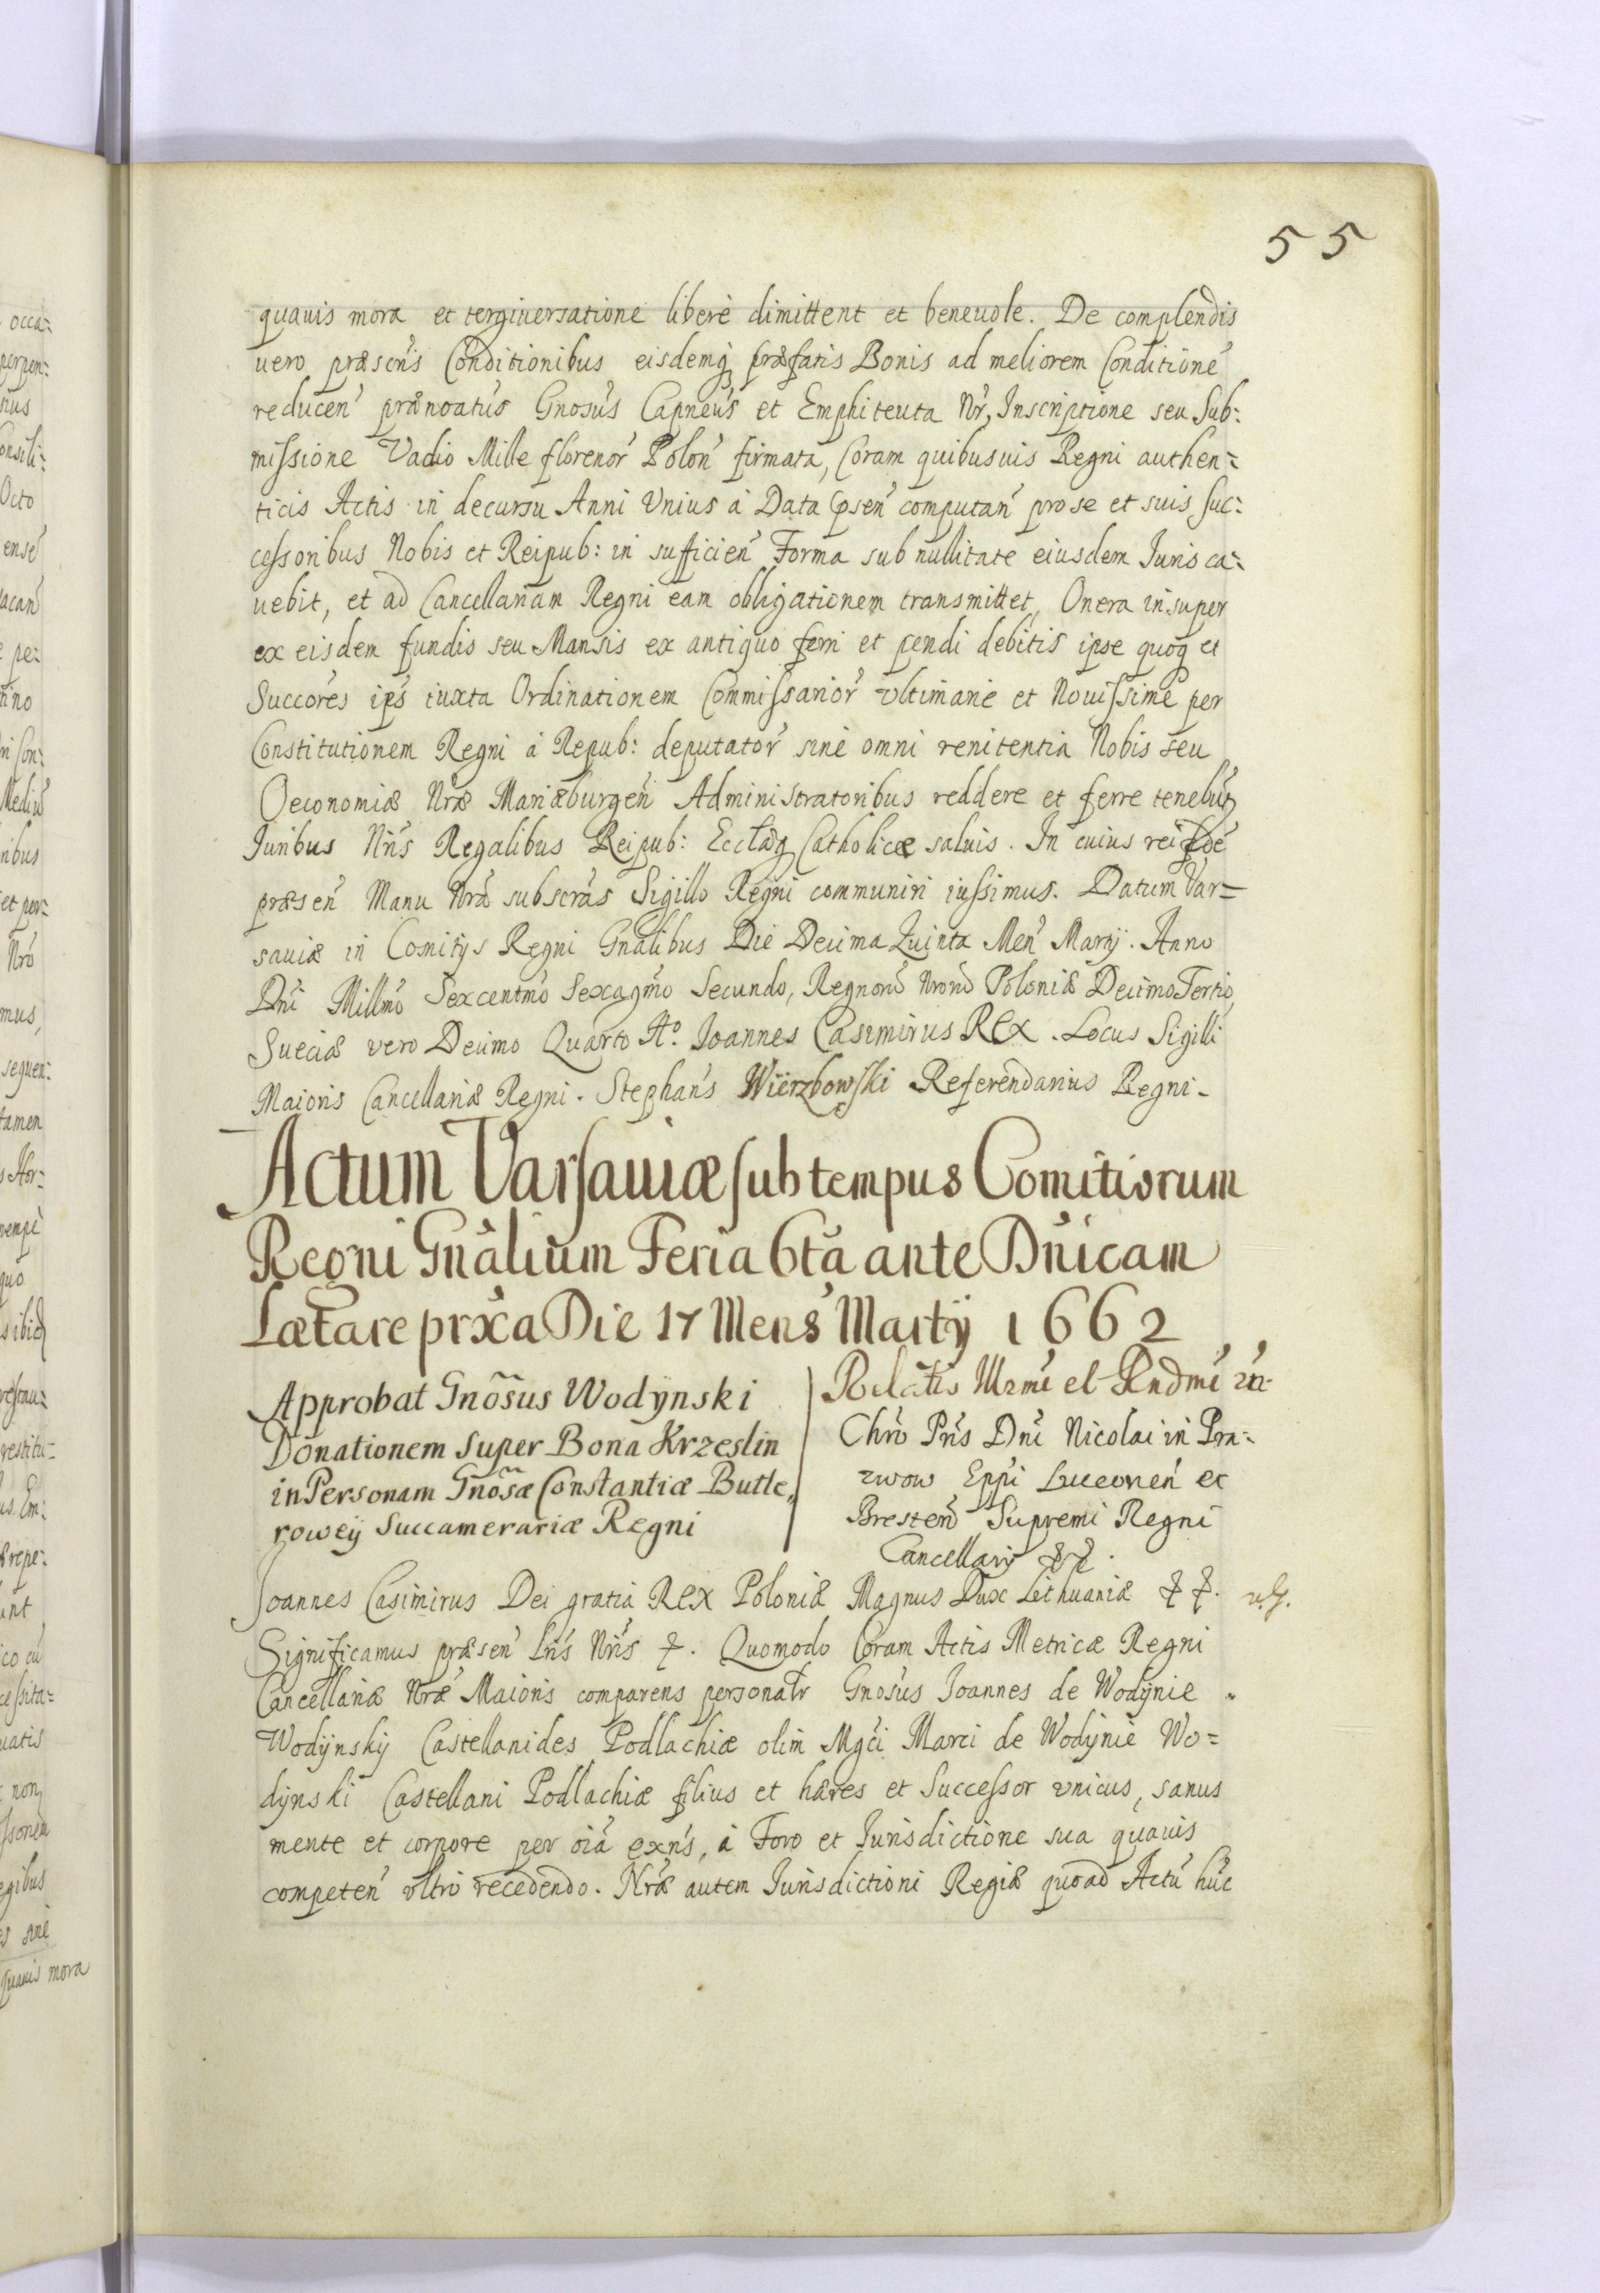 55
quauis mora et tergiuersatione liberè dimittent et beneuole. De complendis
uero præsentis Conditionibus eisdemq præfatis Bonis ad meliorem Conditione
reducen prænoatus Gnosus Capneus et Emphiteuta Nr, Inscriptione seu Sub:
missione Vadio Mille florenor Polon firmata, Coram quibusuis Regni authen=
ticis Actis in decursu Anni Vnius à Data psen computan pro se et suis suc:
cessoribus Nobis et Reipub: in sufficien Forma sub nullitate eiusdem Juris ca=
uebit, et ad Cancellariam Regni eam obligationem transmittet, Onera insuper
ex eisdem fundis seu Mansis ex antiquo ferri et pendi debitis ipse quoq et
Succores ips iuxta Ordinationem Commissarior vltimariè et Nouissime per
Constitutionem Regni à Repub: deputator sinè omni renitentia Nobis seu
Oeconomiæ Nræ Mariæburgen Administratoribus reddere et ferre teneb
Juribus Nris Regalibus Reipub: Eccl Catholicæ saluis. In cuius rei fide
præsen Manu Nra subscras Sigillo Regni communiri iussimus. Datum Var=
sauiæ in Comitijs Regni Gnalibus Die Decima Quinta Men Martij. Anno
Dni Millmo Sexcentmo Sexagmo Secundo, Regnoru Nroru Poloniæ Decimo Tertio,
Sueciæ vero Decimo Quarto Ao. Joannes Casimirus REX. Locus Sigilli
Maioris Cancellariæ Regni. Stephans Wierzbowski Referendarius Regni -
Actum Varsauiæ sub tempus Comitiorum
Regni Gnalium Feria 6ta ante Dnicam
Lætare prxa Die 17 Mens Martij 1662
Approbat Gnosus Wodynski
Donationem super Bona Krzeslin
in Personam Gnosæ Constantiæ Butle,
rowey Succamerariæ Regni
Relatis Illrmi et Rndmi in
Chro Pris Dni Nicolai in Pra=
zmow Eppi Luceorien et
Bresten Supremi Regni
Cancellarij &&.
Joannes Casimirus Dei gratia REX Poloniæ Magnus Dux Lithuaniæ & &.
Significamus præsen Lris Nris &. Quomodo Coram Actis Metricæ Regni
Cancellariæ Nræ Maioris comparens personatr Gnosus Joannes de Wodynie
Wodynskij Castellanides Podlachiæ olim Mgci Marci de Wodynie Wo=
dynski Castellani Podlachiæ filius et hæres et Successor vnicus, sanus
mente et corpore per oia exns, à Foro et Jurisdictione sua quauis
competen vltro recedendo. Nræ autem Jurisdictioni Regiæ quoad Actu huc